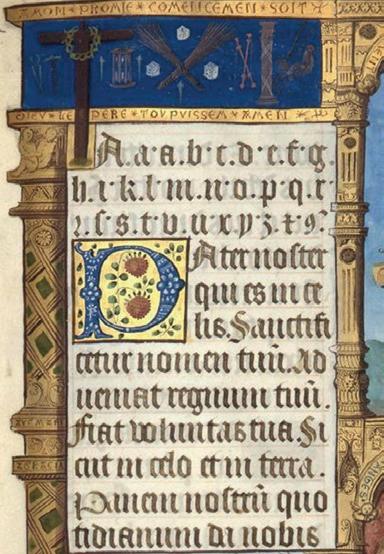 MON PROMIE COMENCEMEN SOIT
DIEV LE PERE TOVPVISSEM AMEN
A.a.a.b.c.d.e.f.g.
h.i.k.l.m.n.o.p.q.r
ꝛ.ſ.s.t.v.u.x.y.z.⁊.ꝯ.
Pater noster
qui es in ce
lis. Sanctifi
cetur nomen tuū. Ad
ueniat regnum tuū.
Fiat voluntas tua. Si
cut in celo et in terra.
Panem nostrū quo
tidianum da nobis